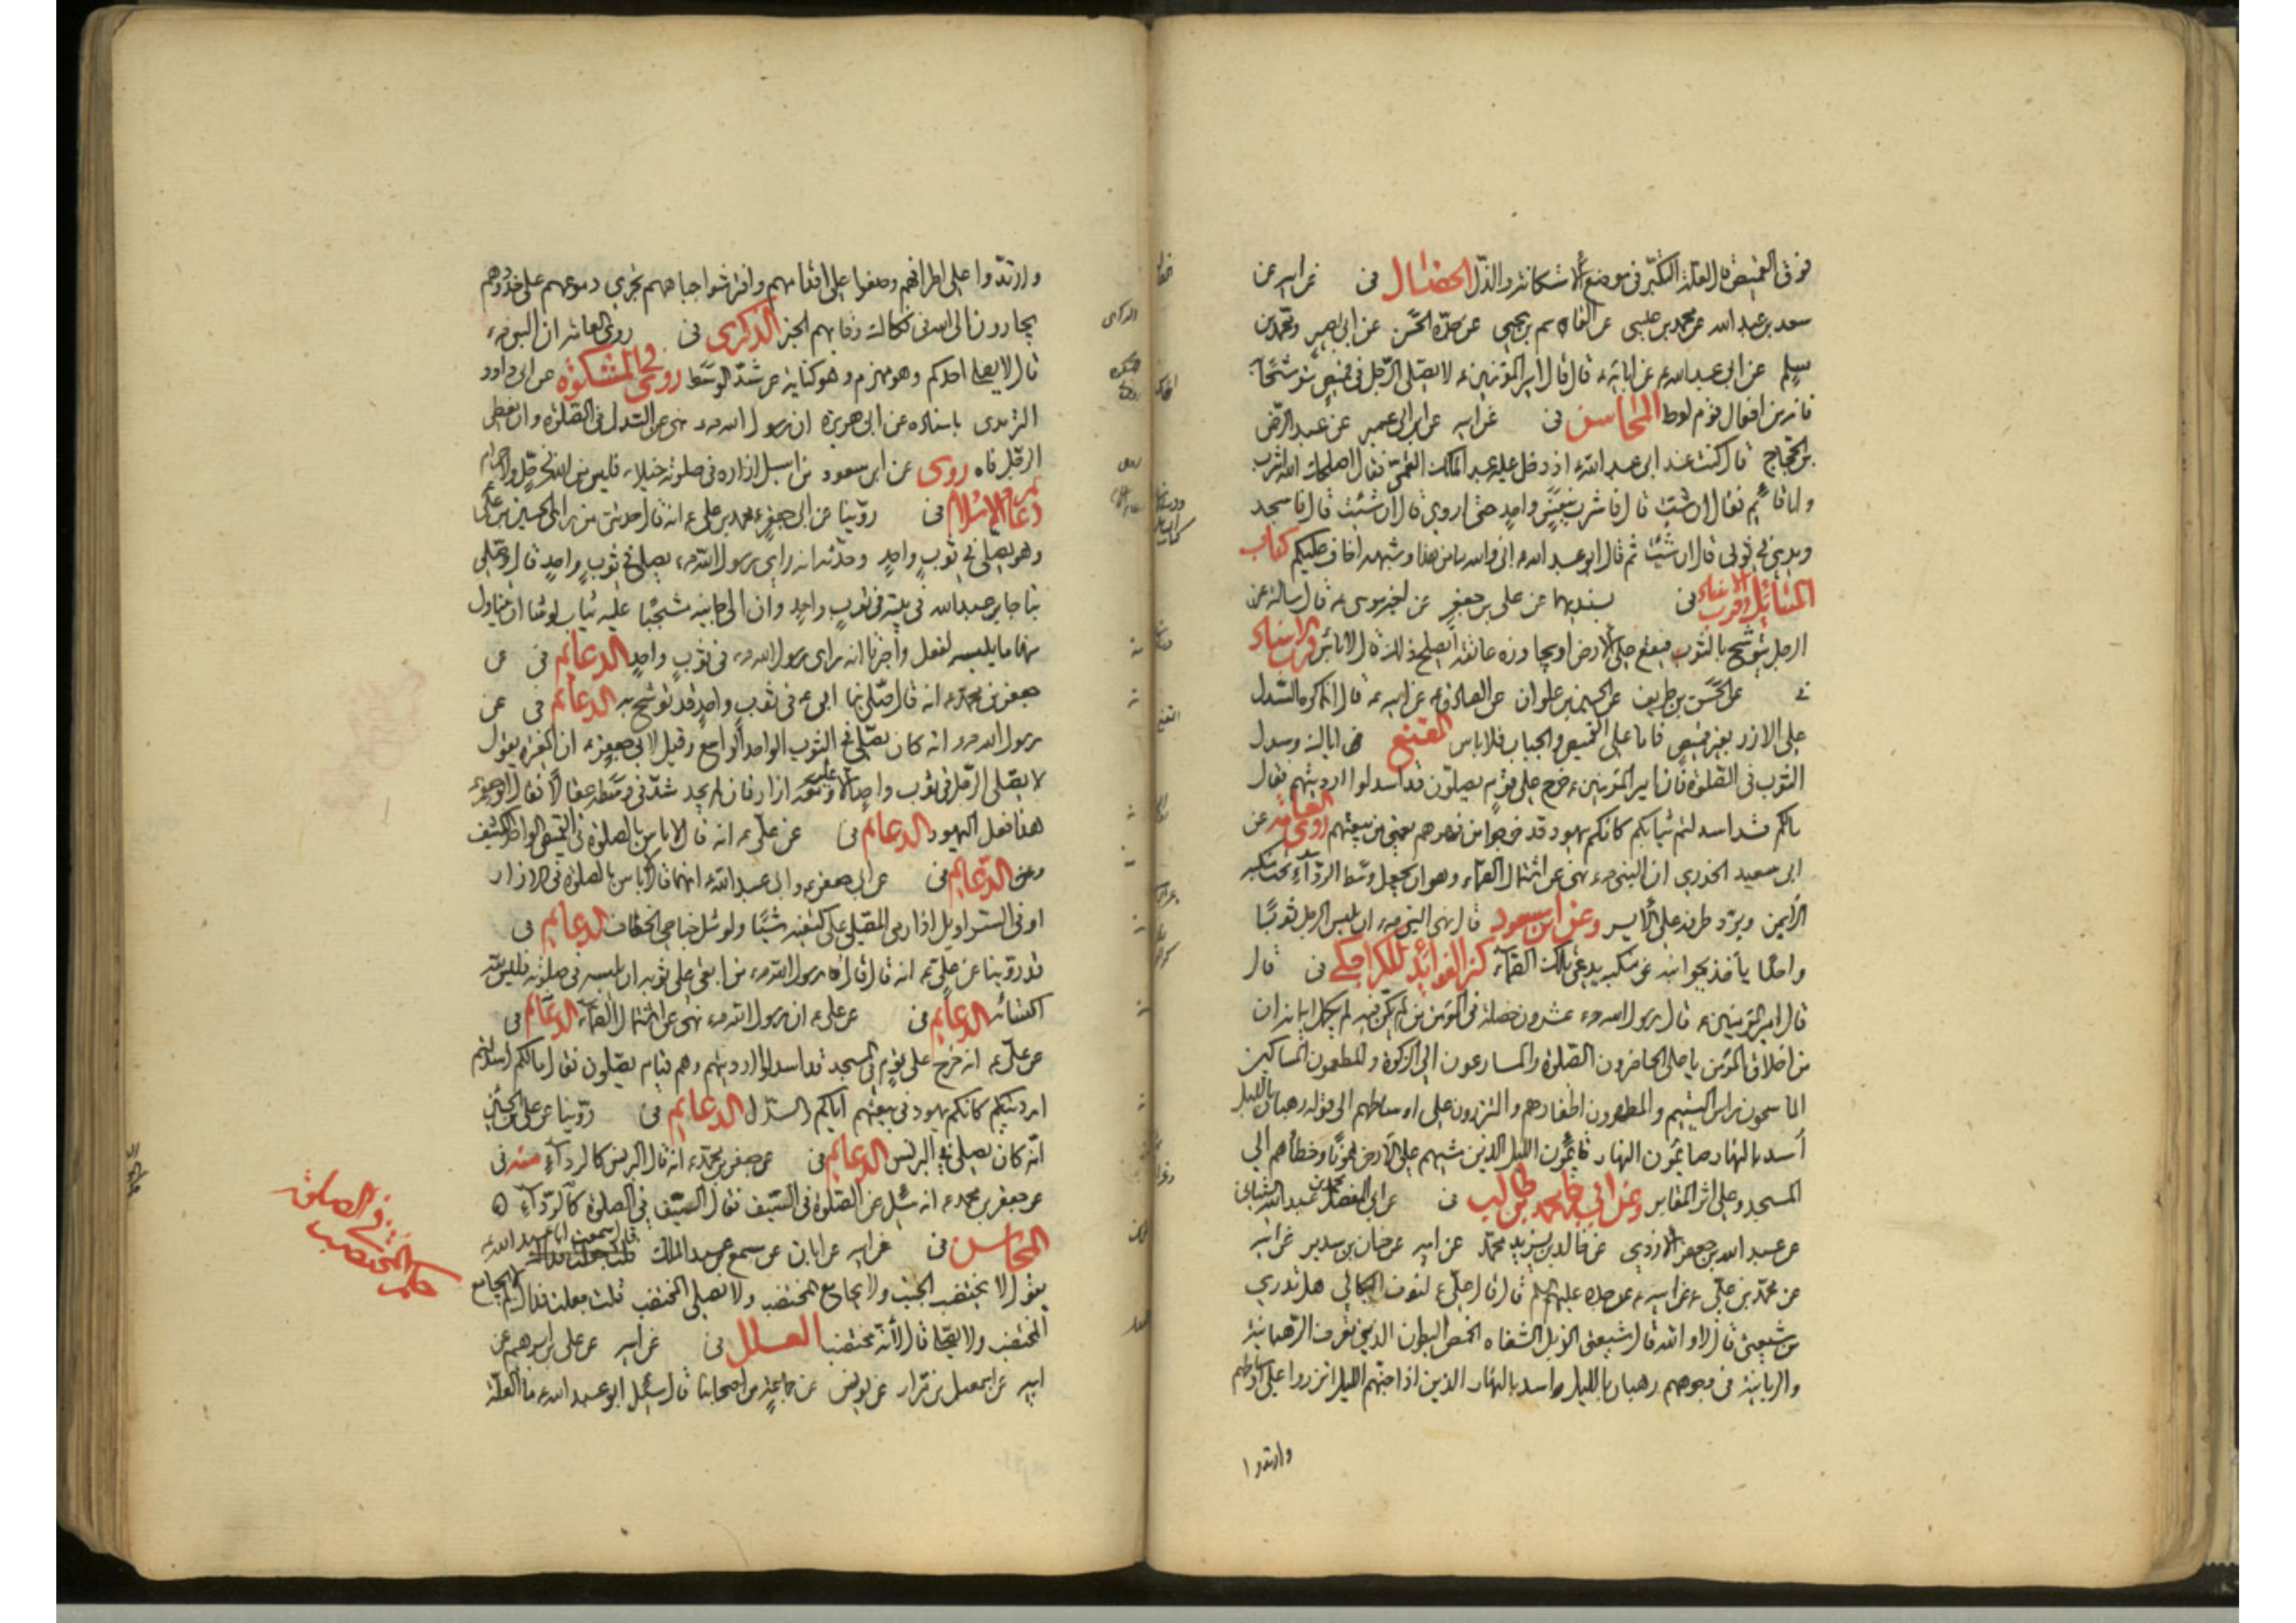 فوق القميص ان العلة التكبر في موضع الاستكانة والذل الخصال في عن ابيه عن
سعد بن عبد الله عن محمد بن عيسى عن القاسم بن يحيى عن جده الحسن عن ابى بصير ومحمد بن
مسلم عن ابى عبد الله ع عن ابائه ع قال قال امير المؤمنين ع لا يصلى الرجل في قميص متوشحا
فانه من افعال قوم لوط المحاسن في عن ابيه عن ابن ابى عمير عن عبد الرحمن
بن الحجاج قال كنت عند ابى عبد الله ع اذ دخل عليه عبد الملك القمى فقال اصلحك الله اشرب
وانا قائم فقال ان شئت قال فاشرب بنفس واحد حتى اروى قال ان شئت قال فاسجد
ويدى في ثوبى قال ان شئت ثم قال ابو عبد الله ع انى والله ما من هذا وشبهه اخاف عليكم كتاب
المسائل وقرب الاسناد في بسنديهما عن على بن جعفر عن اخيه موسى ع قال سالته عن
الرجل يتوشح بالثوب فيقع على الارض او يجاوز عاتقه ايصلح ذلك قال لا باس قرب الاسناد
في عن الحسن بن ظريف عن الحسين بن علوان عن الصادق ع عن ابيه ع قال انما كره السدل
على الازر بغير قميص فاما على القميص والجباب فلا باس المقنع اياك وسدل
الثوب في الصلوة فان امير المؤمنين ع خرج على قوم يصلون قد اسدلوا ارديتهم فقال
مالكم قد اسدلتم ثيابكم كانكم يهود قد خرجوا من فهرهم يعنى من بيعتهم روى العامة عن
ابى سعيد الخدرى ان النبى ص نهى عن اشتمال الصماء وهو ان يجعل وسط الرداء تحت منكبه
الايمن ويرد طرفه على الايسر وعن ابن مسعود قال نهى النبى ص ان يلبس الرجل ثوبا
واحدا يأخذ بجوانبه عن منكبيه يدعى تلك الصماء كنز الفوائد للكراجكى في قال
قال امير المؤمنين ع قال رسول الله ص عشرون خصلة في المؤمن من لم يكن فيه لم يكمل ايمانه ان
من اخلاق المؤمن يا على الحاضرون الصلوة والمسارعون الى الزكوة والمطعمون المساكين
الماسحون راس اليتيم والمطهرون اظفارهم والمتزرون على اوساطهم الى قوله رهبان بالليل
أسد بالنهار صائمون النهار قائمون الليل الذين مشيهم على الارض هونا وخطاهم الى
المسجد وعلى اثر المقابر وعن ابى محمد بن طالب في عن ابى المفضل محمد بن عبد الله الشيبانى
عن عبد الله بن جعفر الازدى عن خالد بن يزيد بن محمد عن ابيه عن حنان بن سدير عن ابيه
عن محمد بن على ع عن ابيه ع عن جده عليهم السلم قال قال على ع لنوف البكالى هل تدرى
من شيعتى قال لا والله قال شيعتى الذبل الشفاه الخمص البطون الذين تعرف الرهبانية
والربانية في وجوههم رهبان بالليل واسد بالنهار الذين اذا جنهم الليل اتزروا على اوساطهم
وارتدوا
وارتدوا على اطرافهم وصفوا على اقدامهم وافترشوا جباههم تجرى دموعهم على خدودهم
يجارون الى الله في فكاك رقابهم الخبر الذكرى في روى العامة ان النبى ص
قال لا يصلى احدكم وهو محزم وهو كناية عن شد الوسط روى في المشكوة عن ابى داود
الترمذى باسناده عن ابى هريرة ان رسول الله ص نهى عن السدل في الصلوة وان يغطى
الرجل فاه روى عن ابن مسعود من اسبل ازاره في صلوته خيلاء فليس من الله في حل ولا حرام
دعائم الاسلام في روينا عن ابى جعفر محمد بن على ع انه قال حدثنى من راى الحسين بن على
وهو يصلى في ثوب واحد وحدثه انه راى رسول الله ص يصلى في ثوب واحد قال وصلى
بنا جابر بن عبد الله في بيته في ثوب واحد وان الى جانبه مشجبا عليه ثياب لو شاء ان يتناول
منها ما يلبسه لفعل واخبرنا انه راى رسول الله ص في ثوب واحد الدعائم في عن
جعفر بن محمد ع انه قال صلى بنا ابى ع في ثوب واحد قد توشح به الدعائم في عن
رسول الله ص انه كان يصلى في الثوب الواحد الواسع وقيل لابى جعفر ع ان المغيرة يقول
لا يصلى الرجل في ثوب واحد الا ومعه ازار فان لم يجد شد في وسطه عقالا فقال ابو جعفر ع
هذا فعل اليهود الدعائم في عن على ع انه قال لا باس بالصلوة في القميص الواحد الكثيف
وعن الدعائم في عن ابى جعفر ع وابى عبد الله ع انهما قالا لا باس بالصلوة في الازار
او في السراويل اذا رمى المصلى على كتفيه شيئا ولو مثل جناحى الخطاف الدعائم في
قد روينا عن على ع انه قال قال رسول الله ص من ابقى على ثوبه ان يلبسه في صلوته فليس لله
اكتسائه الدعائم في عن على ع ان رسول الله ص نهى عن اشتمال الصماء الدعائم في
عن على ع انه خرج على قوم في المسجد قد اسدلوا ارديتهم وهم قيام يصلون فقال مالكم اسدلتم
ارديتكم كانكم يهود في بيعتهم اياكم والسدل الدعائم في روينا عن على بن الحسين
انه كان يصلى في البرنس الدعائم في عن جعفر بن محمد ع انه قال البرنس كالرداء منه في
عن جعفر بن محمد ع انه سئل عن الصلوة في السيف فقال السيف في الصلوة كالرداء
المحاسن في عن ابيه عن ابان عن مسمع بن عبد الملك قال سمعت ابا عبد الله ع
يقول لا يختضب الجنب ولا يجامع المختضب ولا يصلى المختضب قلت جعلت فداك لم لا يجامع
المختضب ولا يصلى قال لانه مختضب العلل في عن ابيه عن على بن ابرهيم عن
ابيه عن اسمعيل بن مرار عن يونس عن جماعة من اصحابنا قال سئل ابو عبد الله ع ما العلة
في الصلوة
المختضب